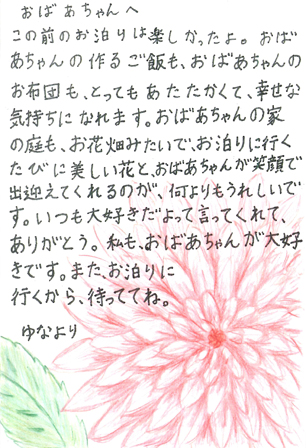 おばあちゃんへ
この前のお泊りは楽しかったよ。おば
あちゃんの作るご飯も、おばあちゃんの
お布団も、とってもあたたかくて、幸せな
気持ちになれます。おばあちゃんの家
の庭も、お花畑みたいで、お泊りに行く
たびに美しい花と、おばあちゃんが笑顔で
出迎えてくれるのが、何よりもうれしいで
す。いつも大好きだよって言ってくれて、
ありがとう。私も、おばあちゃんが大好
きです。また、お泊りに
行くから、待っててね。
ゆなより